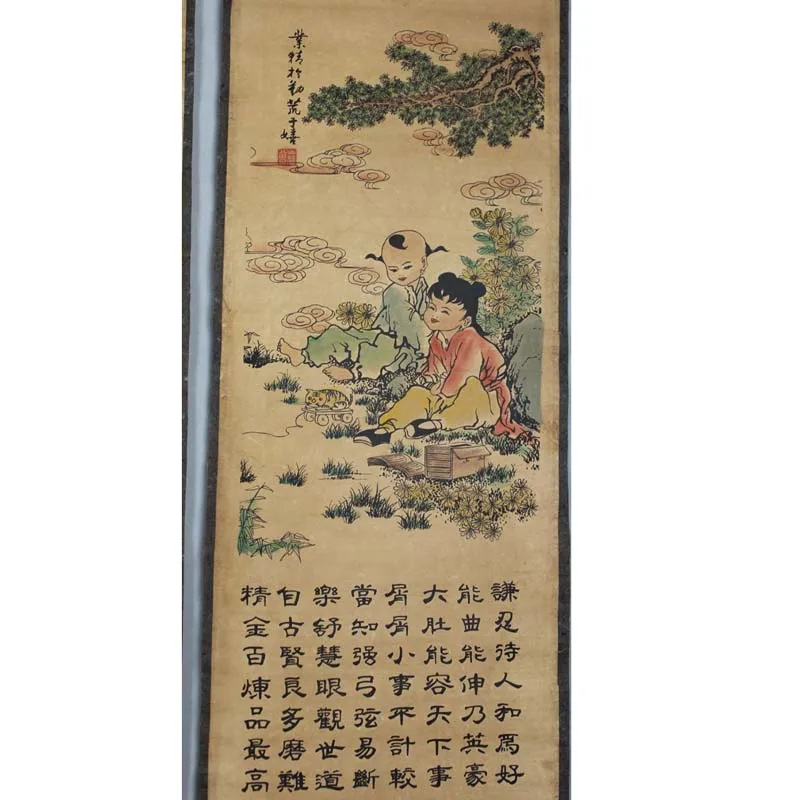 業精於勤荒于嬉
謙忍待人和爲好
能曲能伸乃英豪
大肚能容天下事
屑屑小事不計較
當知强弓弦易斷
樂舒慧眼觀世道
自古賢良多磨難
精金百煉品最高